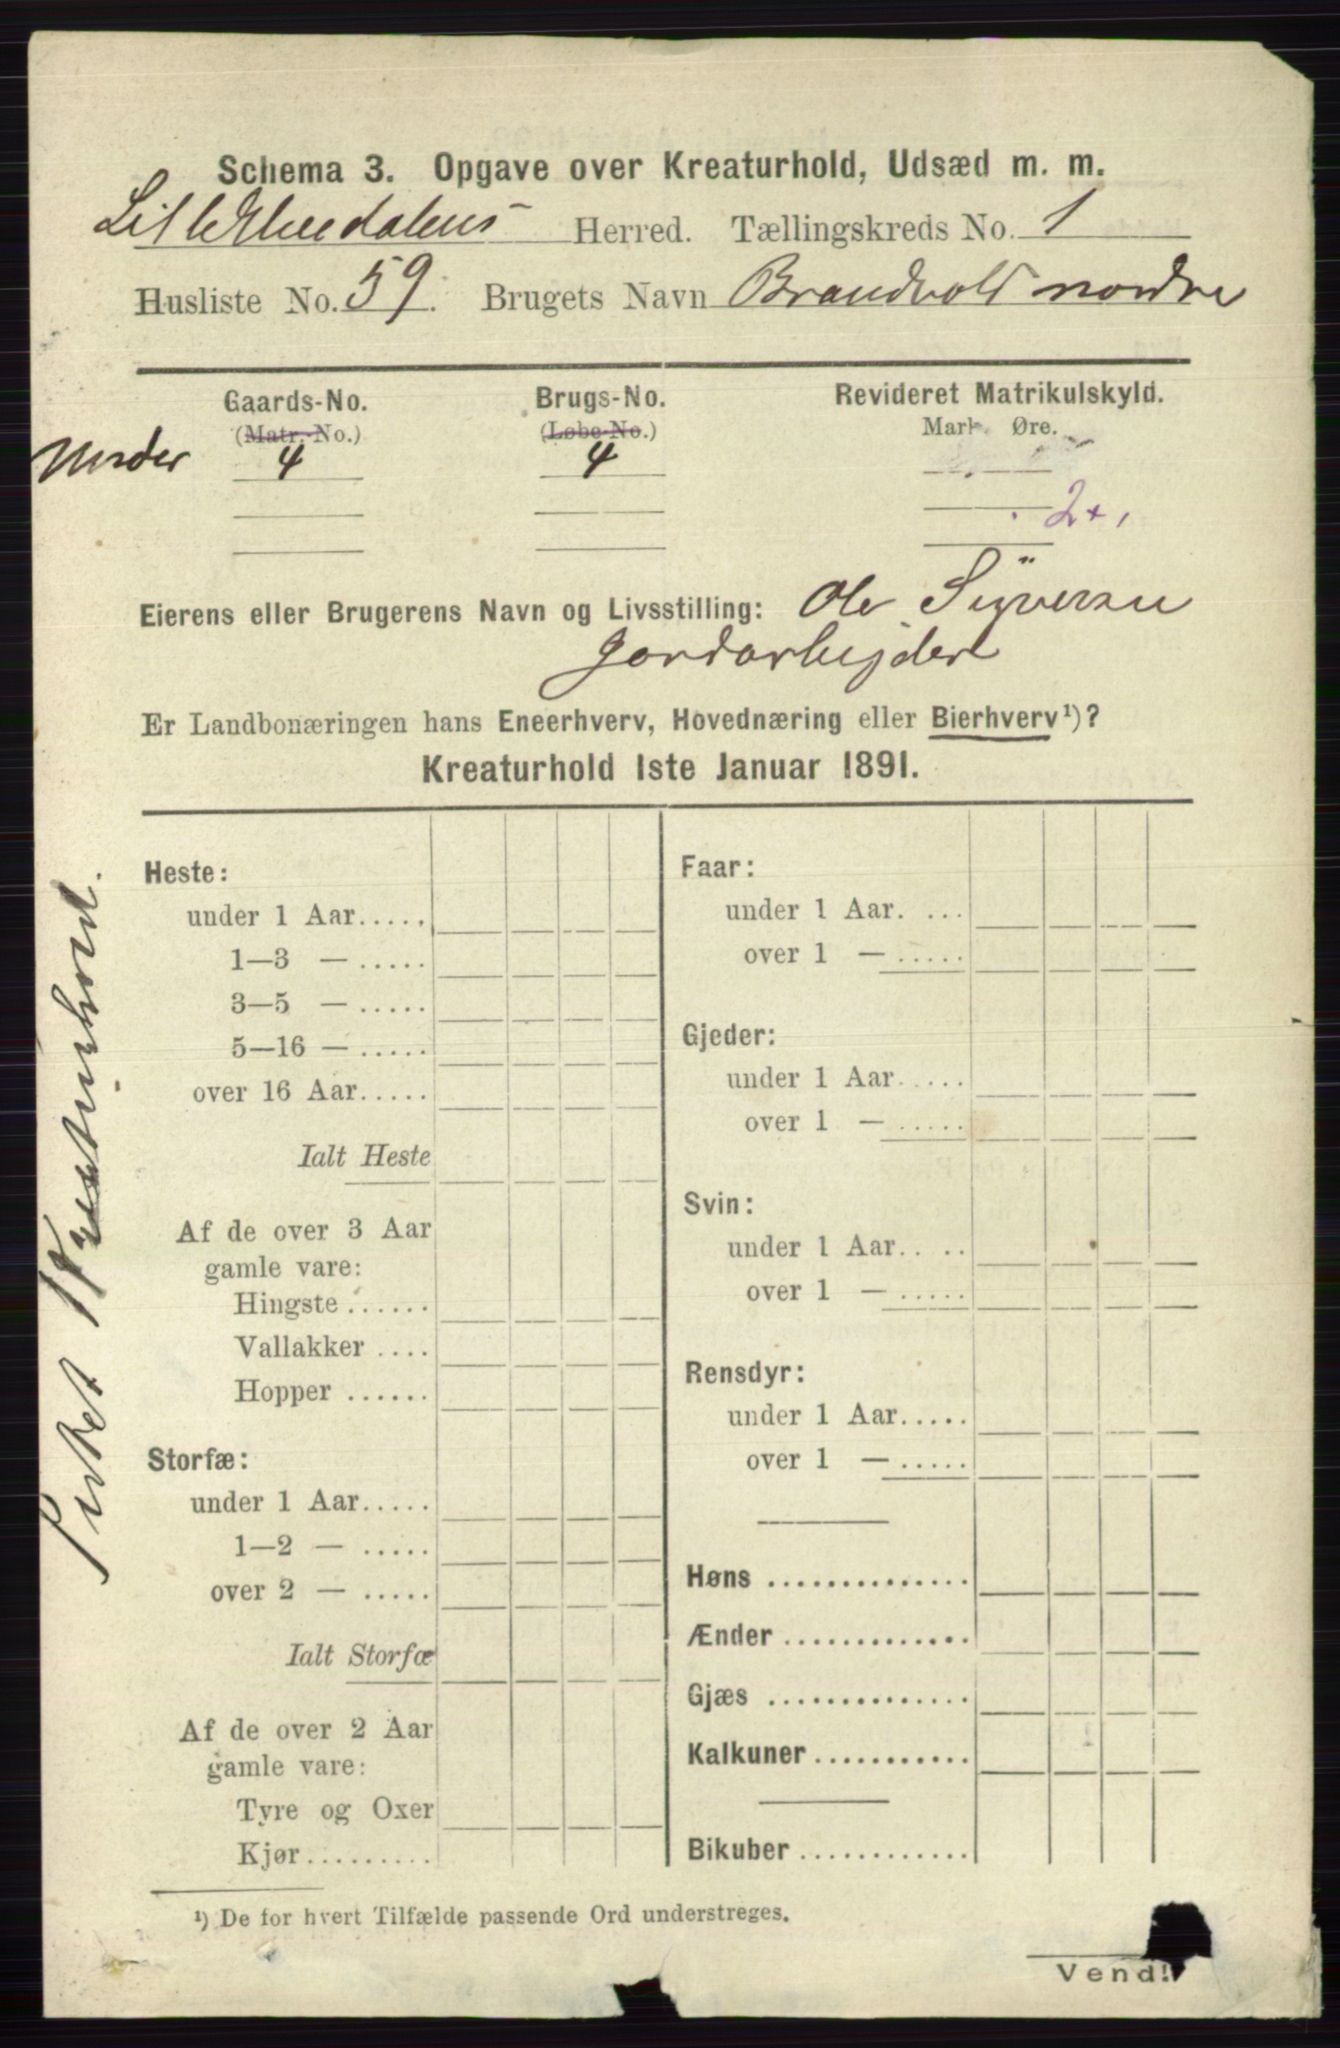 Schema 3. Opgave over Kreaturhold, Udsæd m. m.
Lille Elvedalens Herred. Tællingskreds No. 1
Husliste No. 59. Brugets Navn Brandvold nordre
Gaards-No. Brugs-No. Revideret Matrikulskyld.
(Matr.-No.) (Løbe-No.) Mark. Øre.
Under 4 4
2+,
Eierens eller Brugerens Navn og Livsstilling: Ole Syversen
Jordarbejder
Er Landbonæringen hans Eneerhverv, Hovednæring eller Bierhverv¹)?
Kreaturhold 1ste Januar 1891.
Heste:
under 1 Aar.....
1—3 — .....
3—5 — .....
5—16 — .....
over 16 Aar.....
Ialt Heste
Af de over 3 Aar
gamle vare:
Hingste ......
Vallakker ....
Hopper ......
Storfæ:
under 1 Aar.....
1—2 — .....
over 2 — .....
Ialt Storfæ
Af de over 2 Aar
gamle vare:
Tyre og Oxer
Kjør.........
Faar:
under 1 Aar. ...
over 1 — .....
Gjeder:
under 1 Aar.....
over 1 — .....
Svin:
under 1 Aar.. ..
over 1 — .....
Rensdyr:
under 1 Aar.....
over 1 — .....
Høns ..............
Ænder .............
Gjæs ..............
Kalkuner...........
Bikuber ............
Kreaturhold.
¹) De for hvert Tilfælde passende Ord understreges.
Vend!